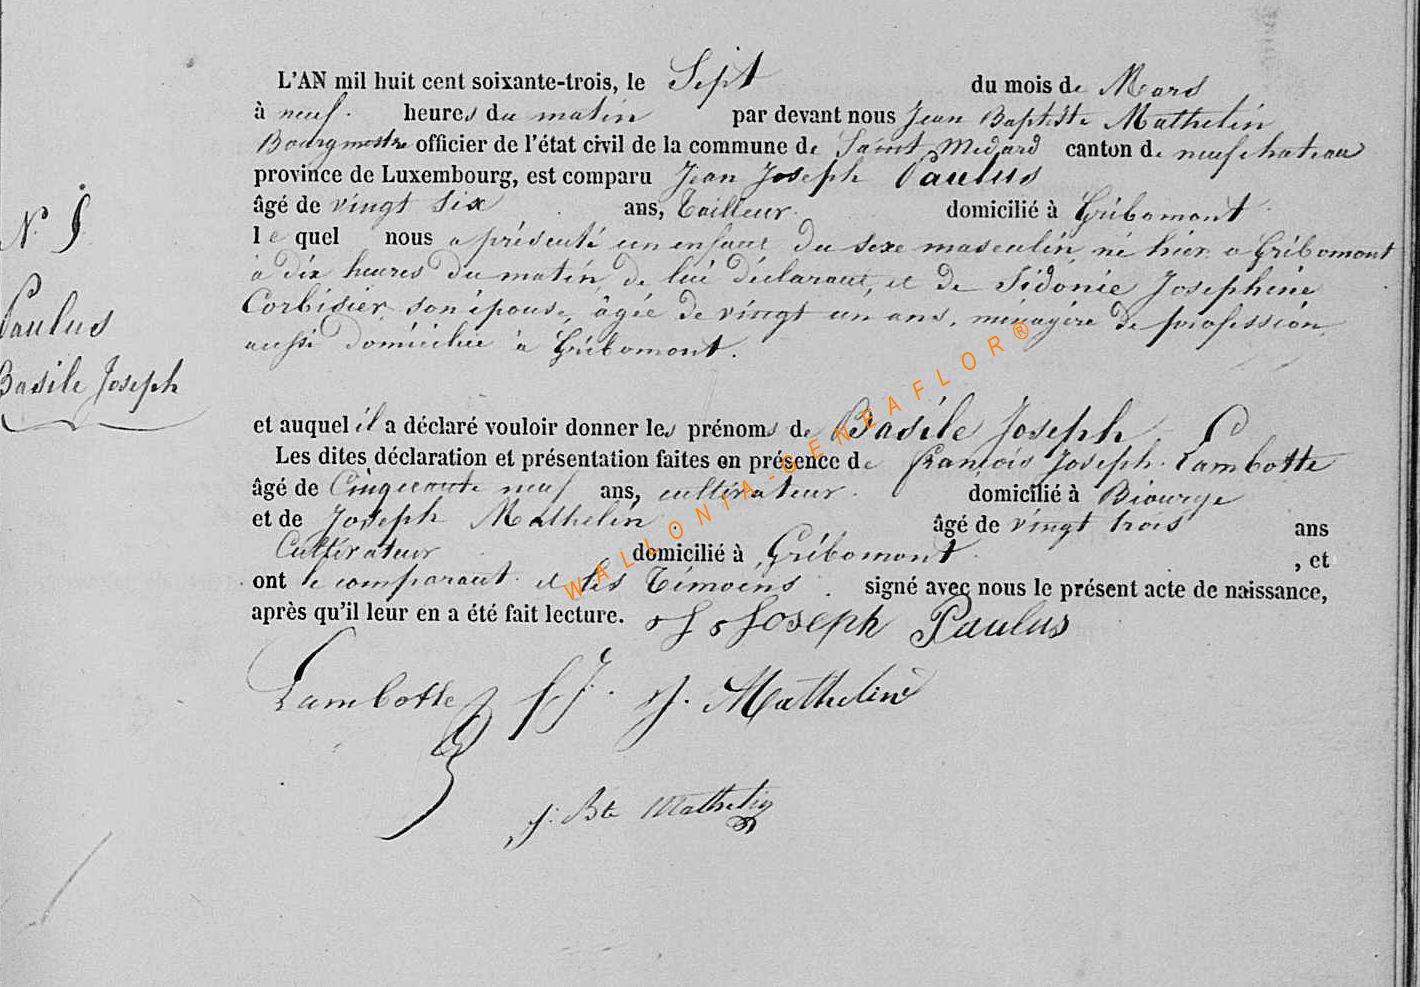 L'AN mil huit cent soixante-trois, le Sept du mois de Mars
à neuf heures du matin par devant nous Jean Baptiste Mathelin
Bourgmestre officier de l'état civil de la commune de Saint Medard canton de neufchateau
province de Luxembourg, est comparu Jean Joseph Paulus
âgé de vingt six ans, Tailleur domicilié à Gribomont
le quel nous a présenté un enfant du sexe masculin, né hier a Gribomont
à dix heures du matin de lui déclarant, et de Sidonie Josephine
Corbisier son épouse, âgée de vingt un ans, ménagère de profession
aussi domiciliée à Gribomont.
N° 5
Paulus
Basile Joseph
et auquel il a déclaré vouloir donner les prénoms de Basile Joseph
Les dites déclaration et présentation faites en présence de françois Joseph Lambotte
âgé de Cinquante neuf ans, cultivateur domicilié à Biourge
et de Joseph Mathelin âgé de vingt trois ans
Cultivateur domicilié à Gribomont, et
ont le comparant et les Témoins signé avec nous le présent acte de naissance,
après qu'il leur en a été fait lecture. J Joseph Paulus
Lambotte f J. J. Mathelin
j. Bte Mathelin
WALLONIA-GENEAFLOR®